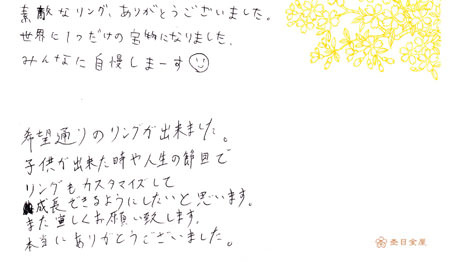 素敵なリング、ありがとうございました。
世界に1つだけの宝物になりました。
みんなに自慢しまーす
希望通りのリングが出来ました。
子供が出来た時や人生の節目で
リングもカスタマイズして
成長できるようにしたいと思います。
また宜しくお願い致します。
本当にありがとうございました。
杢目金屋